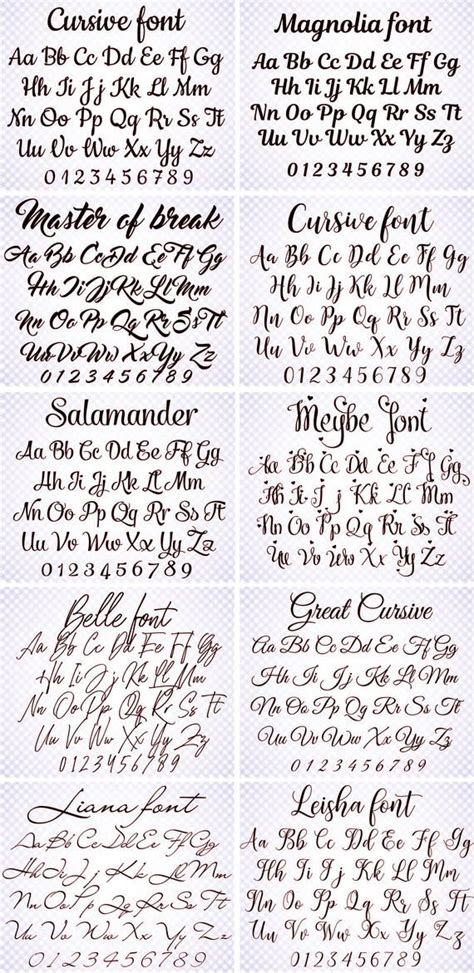 Cursive font
Aa Bb Cc Dd Ee Ff Gg
Hh Ii Jj Kk Ll Mm
Nn Oo Pp Qq Rr Ss Tt
Uu Vv Ww Xx Yy Zz
0123456789
Magnolia font
Aa Bb Cc Dd Ee Ff Gg
Hh Ii Jj Kk Ll Mm
Nn Oo Pp Qq Rr Ss Tt
Uu Vv Ww Xx Yy Zz
0123456789
Master of break
Aa Bb Cc Dd Ee Ff Gg
Hh Ii Jj Kk Ll Mm
Nn Oo Pp Qq Rr Ss Tt
Uu Vv Ww Xx Yy Zz
0123456789
Cursive font
Aa Bb Cc Dd Ee Ff Gg
Hh Ii Jj Kk Ll Mm
Nn Oo Pp Qq Rr Ss Tt
Uu Vv Ww Xx Yy Zz
0123456789
Salamander
Aa Bb Cc Dd Ee Ff Gg
Hh Ii Jj Kk Ll Mm
Nn Oo Pp Qq Rr Ss Tt
Uu Vv Ww Xx Yy Zz
0123456789
Meybe font
Aa Bb Cc Dd Ee Ff Gg
Hh Ii Jj Kk Ll Mm
Nn Oo Pp Qq Rr Ss Tt
Uu Vv Ww Xx Yy Zz
Belle font
Aa Bb Cc Dd Ee Ff Gg
Hh Ii Jj Kk Ll Mm
Nn Oo Pp Qq Rr Ss Tt
Uu Vv Ww Xx Yy Zz
0123456789
Great Cursive
Aa Bb Cc Dd Ee Ff Gg
Hh Ii Jj Kk Ll Mm
Nn Oo Pp Qq Rr Ss Tt
Uu Vv Ww Xx Yy Zz
0123456789
Liana font
Aa Bb Cc Dd Ee Ff Gg
Hh Ii Jj Kk Ll Mm
Nn Oo Pp Qq Rr Ss Tt
Uu Vv Ww Xx Yy Zz
0123456789
Leisha font
Aa Bb Cc Dd Ee Ff Gg
Hh Ii Jj Kk Ll Mm
Nn Oo Pp Qq Rr Ss Tt
Uu Vv Ww Xx Yy Zz
0123456789